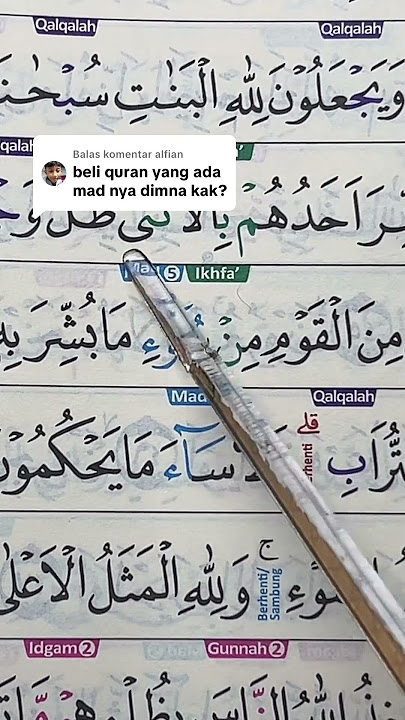 Qalqalah Qalqalah
وَيَجْعَلُوْنَ لِلّٰهِ الْبَنٰتِ سُبْحٰنَ
Balas komentar alfian
beli quran yang ada
mad nya dimna kak?
اَحَدُهُمْ بِالْاُنْثٰى ظَلَّ
Mad 5 Ikhfa'
مِنَ الْقَوْمِ مِنْ سُوْۤءِ مَا بُشِّرَ بِهٖ
Mad Qalqalah
التُّرَابِ قلے سَاۤءَ مَا يَحْكُمُوْنَ
السَّوْءِ ج Berhenti/
Sambung وَلِلّٰهِ الْمَثَلُ الْاَعْلٰى
Idgam 2 Gunnah 2
اللّٰهُ النَّاسَ بِظُلْمِهِمْ